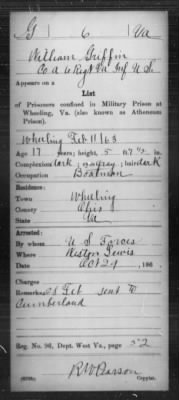 G 6 Va
William Griffin
Co. A 6 Regt Va Inf U.S.
Appears on a
List
of Prisoners confined in Military Prison at
Wheeling, Va. (also known as Atheneum
Prison).
Wheeling Feb 11/63
Age 17 years; height, 5 ft 7 in.
Complexion dark; eyes gray; hair dark
Occupation Boatman
Residence:
Town Wheeling
County Ohio
State Va
Arrested:
By whom U S Forces
Where Weston Lewis
Date Oct 29, 186 .
Charges
Remarks: 28 Feb sent to
Cumberland
Reg. No. 96, Dept. West Va., page 52
R W Pearson
Copyist.